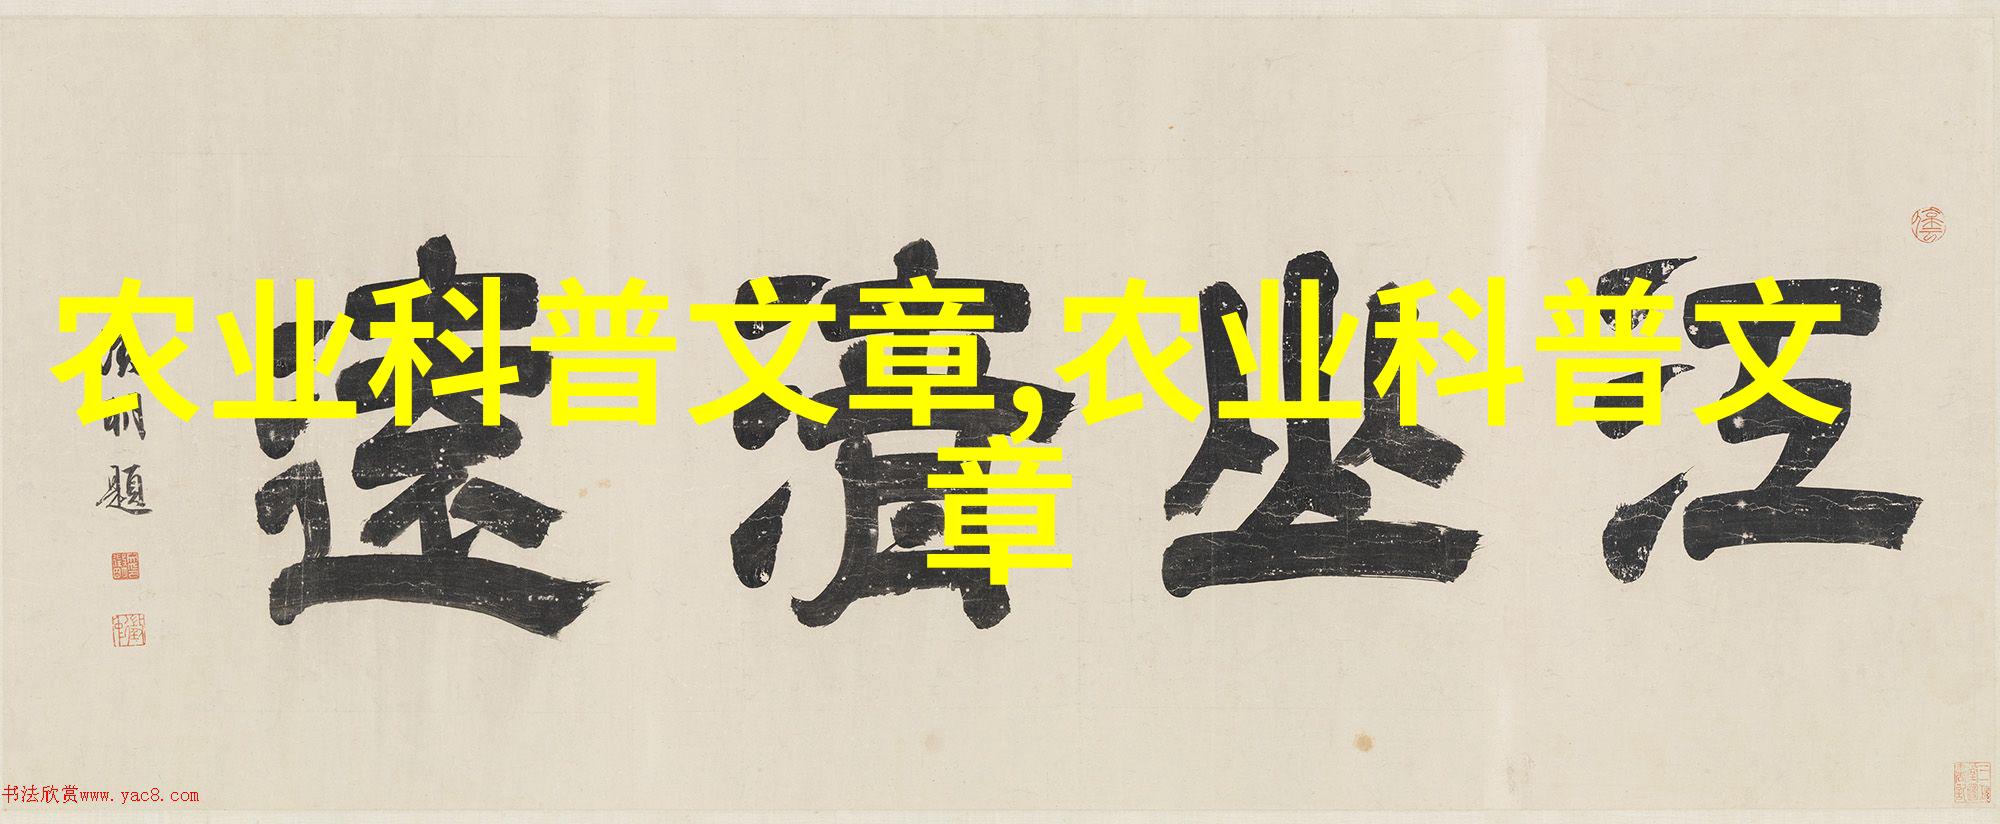 农业科普文章,农业科普文
章
江山清遠
題
书法欣赏www.yac8.com